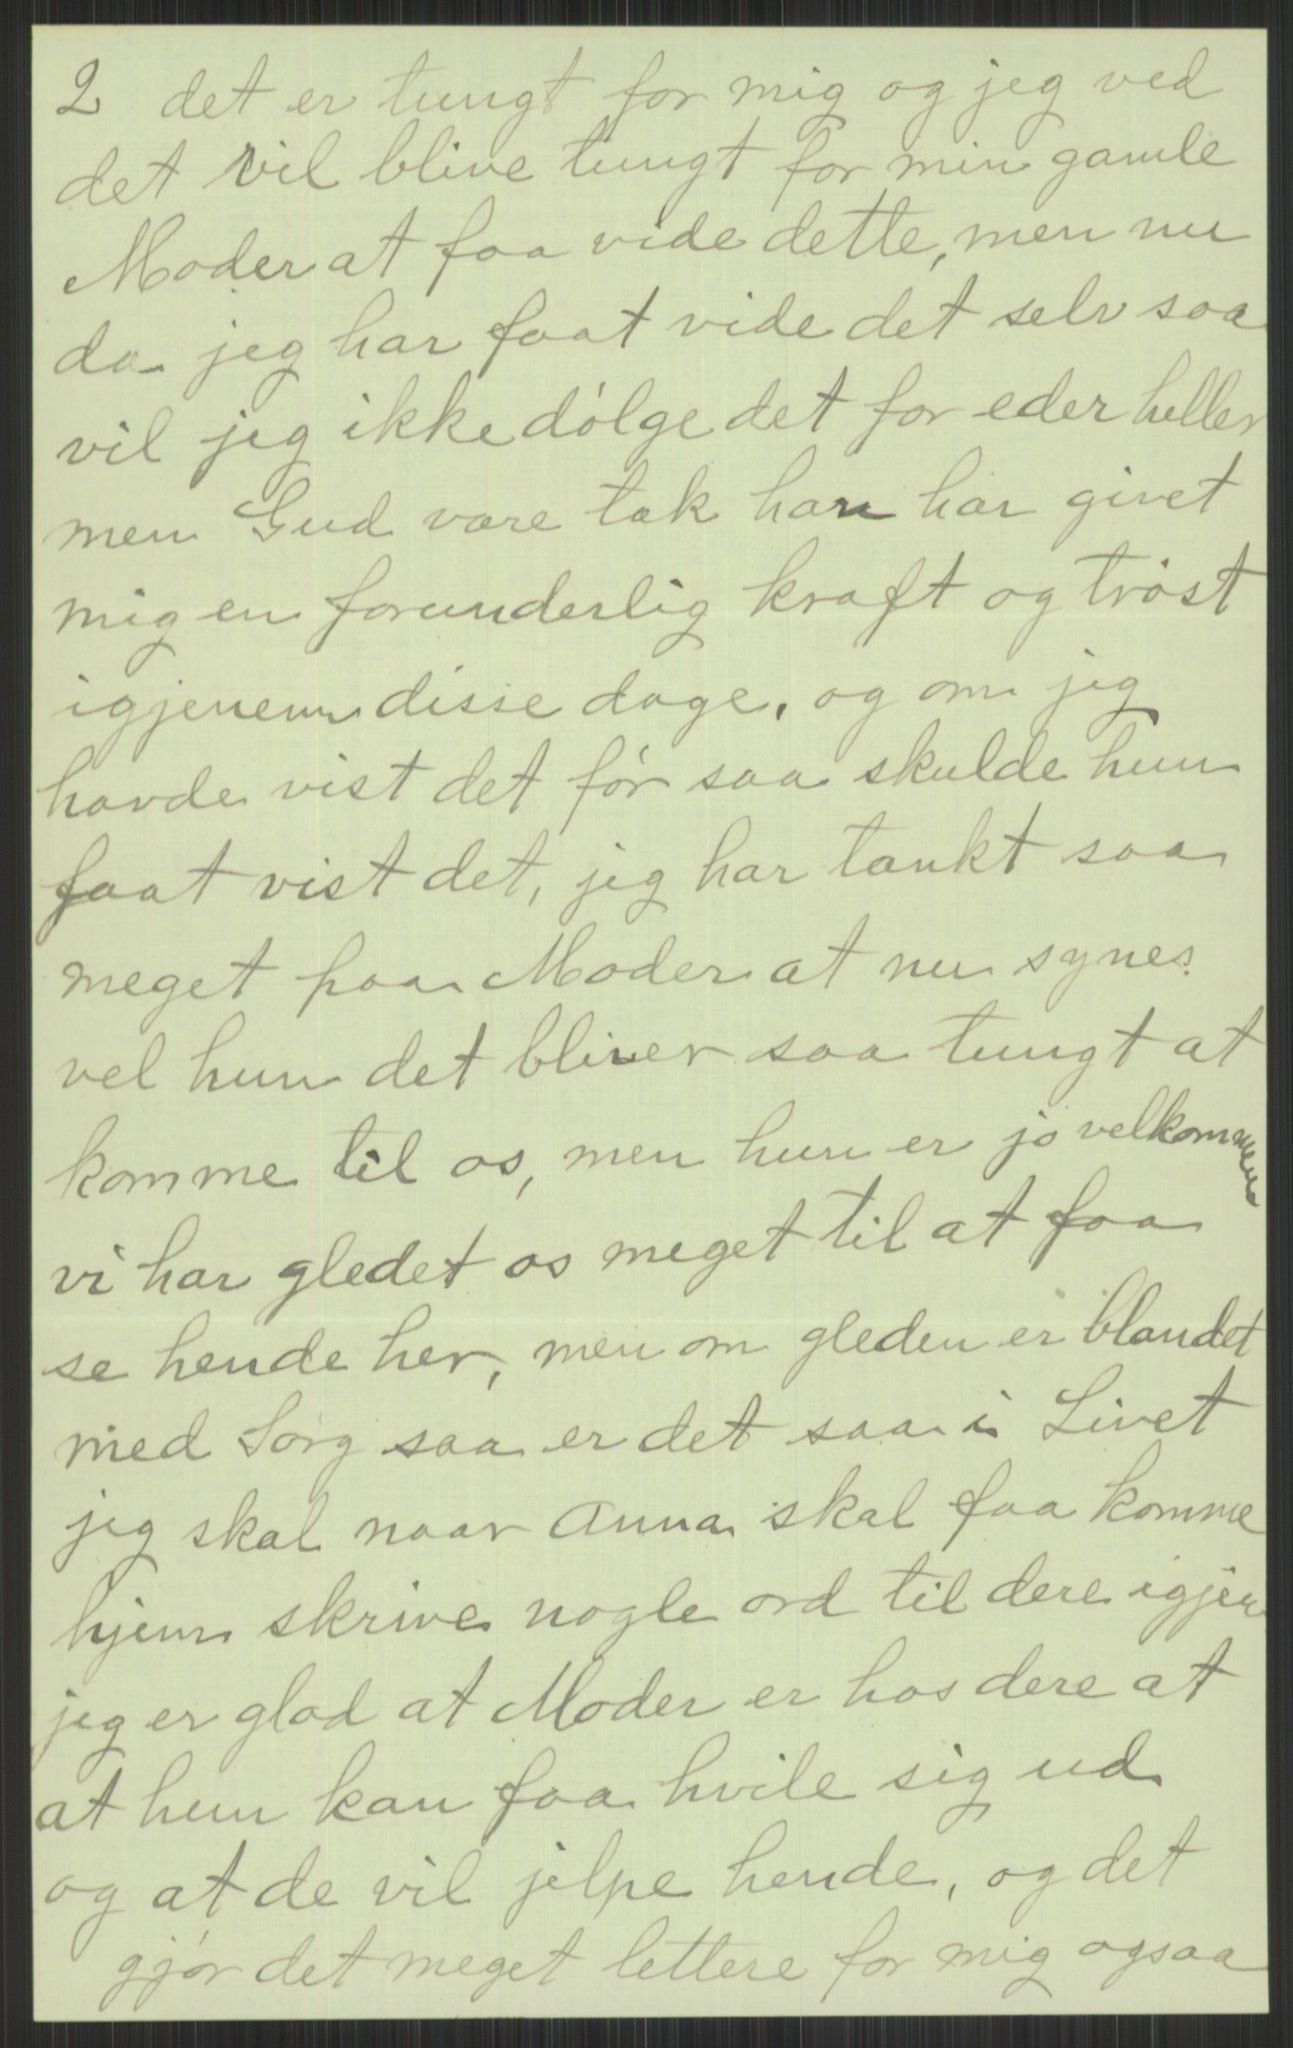 2 det er tungt for mig og jeg ved
det vil blive tungt for min gamle
Moder at faa vide dette, men nu
da jeg har faat vide det selv saa
vil jeg ikke dólge det for eder heller
men Gud være tak han har givet
mig en forunderlig kraft og tróst
igjenem disse dage, og om jeg
havde vist det fór saa skulde hun
faat vist det, jeg har tænkt saa
meget paa Moder at nu synes
vel hun det bliver saa tungt at
komme til os, men hun er jo velkommen
vi har gledet os meget til at faa
se hende her, men om gleden er blandet
med Sorg saa er det saa i Livet
jeg skal naar Anna skal faa komme
hjem skrive nogle ord til dere igjen
jeg er glad at Moder er hos dere at
at hun kan faa hvile sig ud
og at de vil jelpe hende, og det
gjór det meget lettere for mig ogsaa